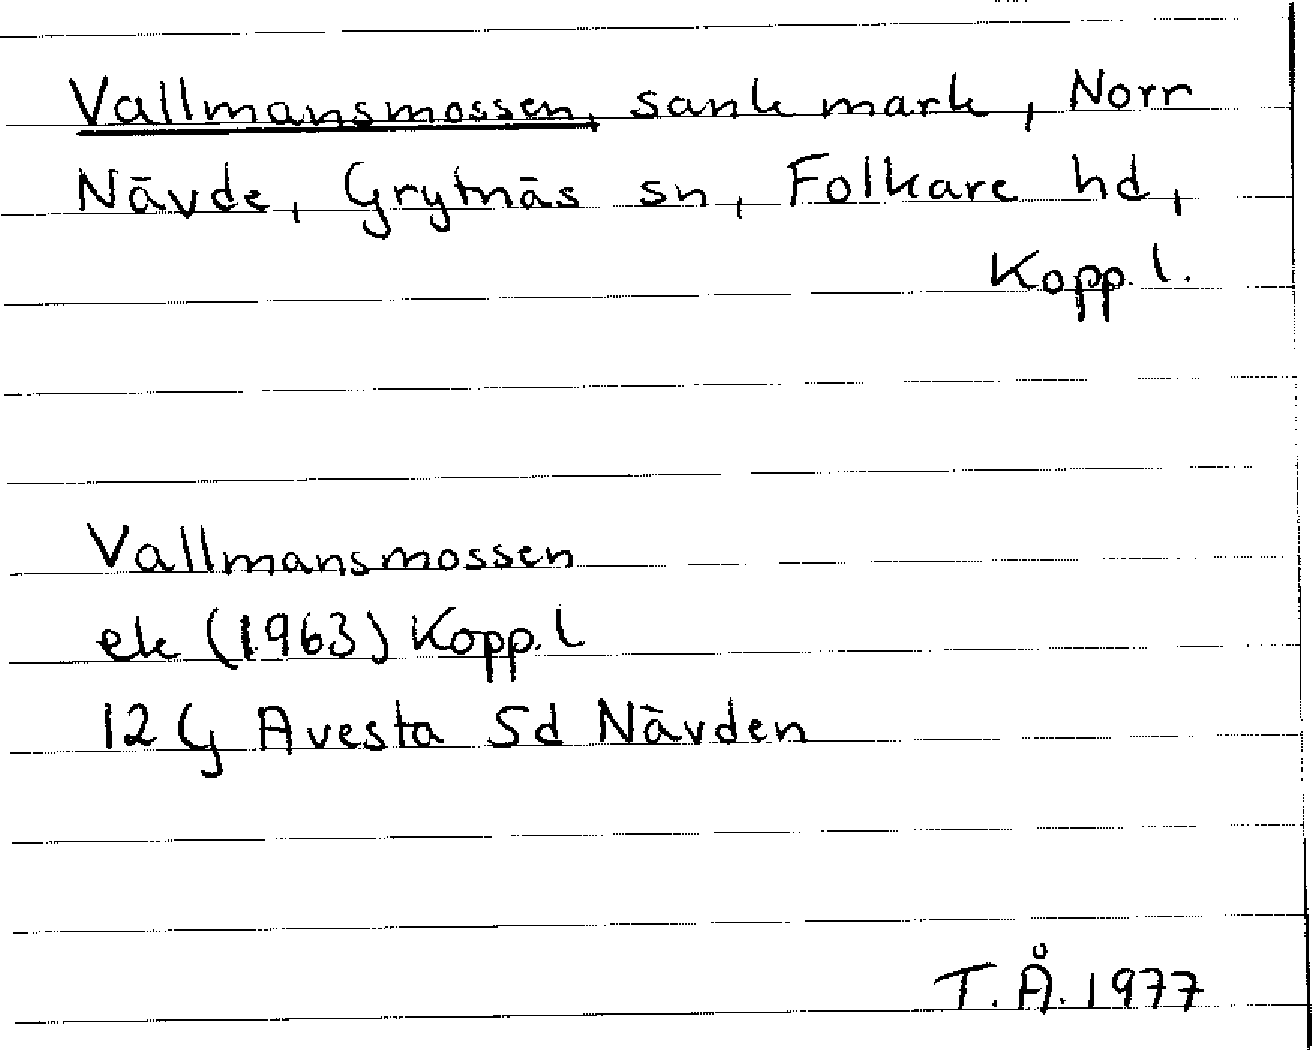 Vallmansmossen, sank mark, Norr
Nävde, Grytnäs sn, Folkare hd,
Kopp. l.
Vallmansmossen
ek (1963) Kopp. l
12 G Avesta Sd Nävden
T. Å. 1977